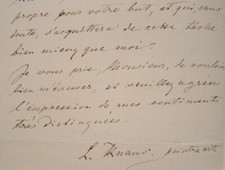 propre pour votre but, et qui, sans
doute, s'acquittera de cette tâche
bien mieux que moi.
Je vous prie, Monsieur, de vouloir
bien m'excuser, et veuillez agréer
l'expression de mes sentiments
très distinguées.
L. Knaus.